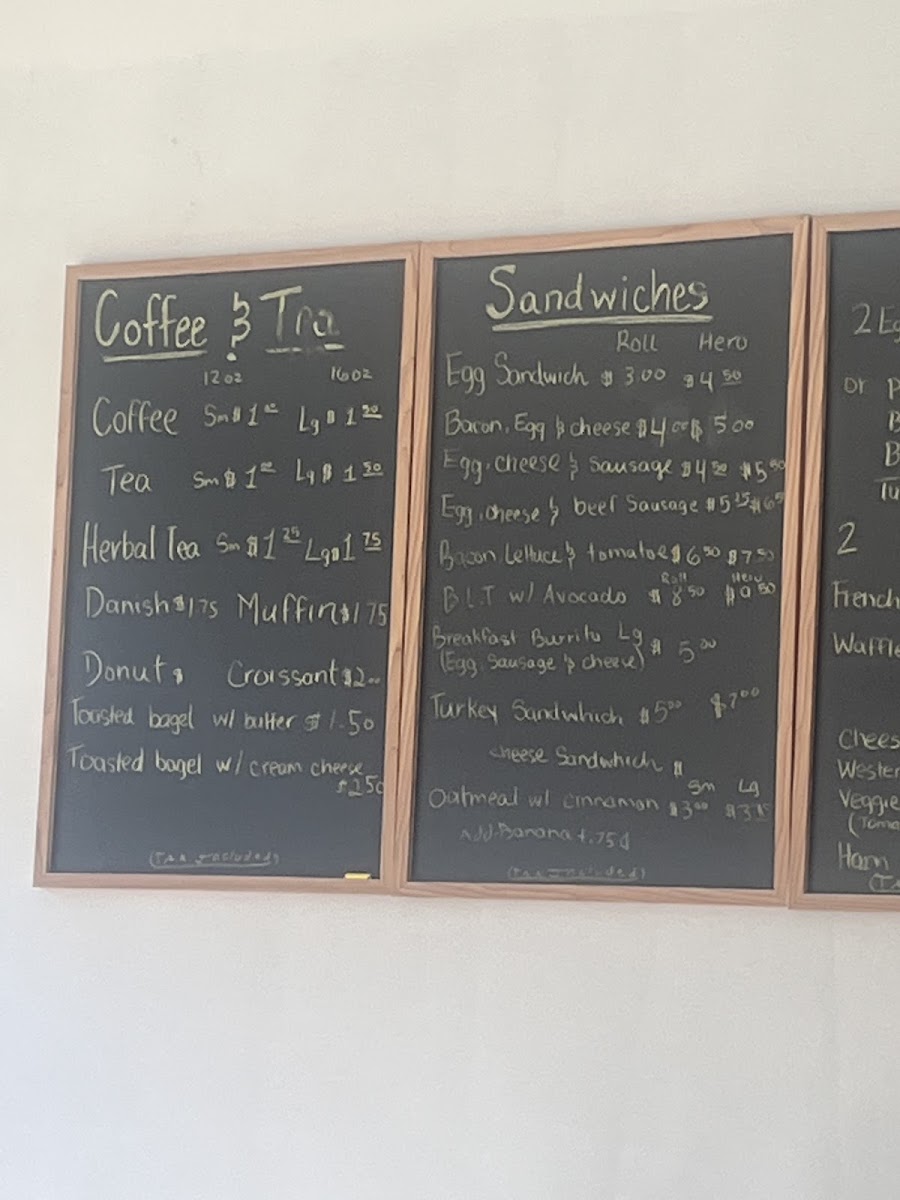 Coffee & Tea
12oz 16oz
Coffee Sm $1 Lg $1.50
Tea Sm $1 Lg $1.50
Herbal Tea Sm $1.25 Lg $1.75
Danish $1.75 Muffin $1.75
Donut $ Croissant $2.00
Toasted bagel w/ butter $1.50
Toasted bagel w/ cream cheese
$2.50
(Tax Included)
Sandwiches
Roll Hero
Egg Sandwich $3.00 $4.50
Bacon, Egg & cheese $4.00 $5.00
Egg, cheese & Sausage $4.50 $5.50
Egg, cheese & beef Sausage
Bacon, Lettuce & tomatoe $6.50 $7.50
Roll Hero
B.L.T w/ Avocado $8.50 $9.50
Breakfast Burrito Lg $5.00
(Egg, Sausage & cheese)
Turkey Sandwhich $5.00 $7.00
cheese Sandwhich $
Sm Lg
Oatmeal w/ cinnamon $3.00
Add Banana +.75¢
(Tax Included)
2
or
2
French
Waffle
Ham